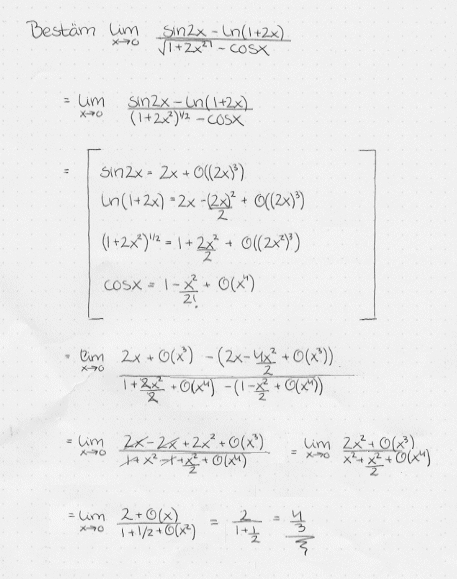 Bestäm lim x→0 (sin2x - ln(1+2x)) / (√(1+2x²) - cosx)
= lim x→0 (sin2x - ln(1+2x)) / ((1+2x²)^(1/2) - cosx)
= [
sin2x = 2x + O((2x)³)
ln(1+2x) = 2x - (2x)²/2 + O((2x)³)
(1+2x²)^(1/2) = 1 + 2x²/2 + O((2x²)³)
cosx = 1 - x²/2! + O(x⁴)
]
= lim x→0 (2x + O(x³) - (2x - 4x²/2 + O(x³))) / (1 + 2x²/2 + O(x⁴) - (1 - x²/2 + O(x⁴)))
= lim x→0 (2x - 2x + 2x² + O(x³)) / (1 + x² - 1 + x²/2 + O(x⁴)) = lim x→0 (2x² + O(x³)) / (x² + x²/2 + O(x⁴))
= lim x→0 (2 + O(x)) / (1 + 1/2 + O(x²)) = 2 / (1 + 1/2) = 4/3